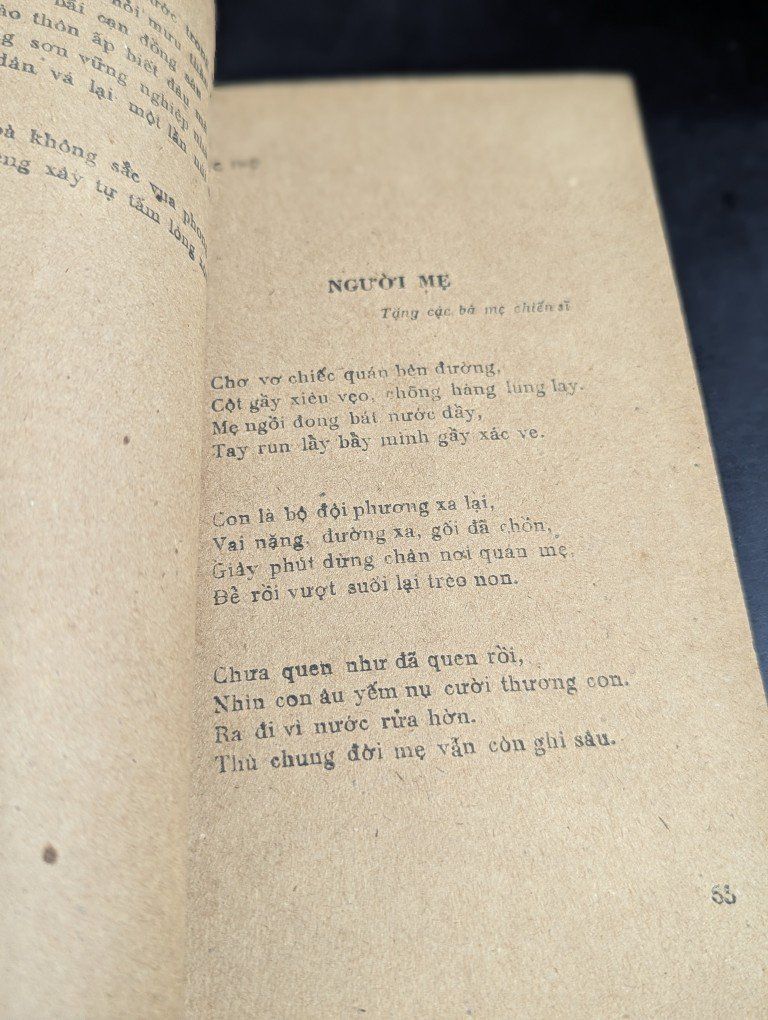 mưu
đồng
thôn ấp biết đâu
sơn vững nghiệp
vá lại một lần
không sắc vua
xây tự tấm lòng
NGƯỜI MẸ
Tặng các bà mẹ chiến sĩ
Chơ vơ chiếc quán bên đường,
Cột gầy xiêu vẹo, chõng hàng lung lay.
Mẹ ngồi đong bát nước đầy,
Tay run lẩy bẩy mình gầy xác ve.
Con là bộ đội phương xa lại,
Vai nặng, đường xa, gối đã chồn,
Giây phút dừng chân nơi quán mẹ,
Để rồi vượt suối lại trèo non.
Chưa quen như đã quen rồi,
Nhìn con âu yếm nụ cười thương con.
Ra đi vì nước rửa hờn.
Thù chung đời mẹ vẫn còn ghi sâu.